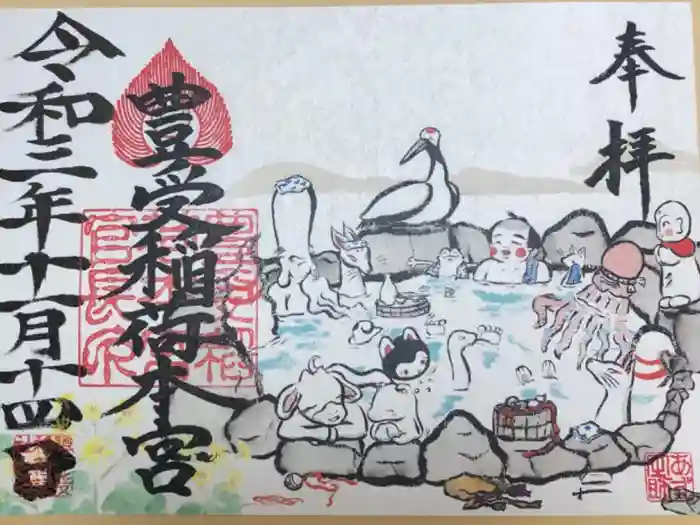 奉拝
豊受稲荷本宮
令和三年十一月十四